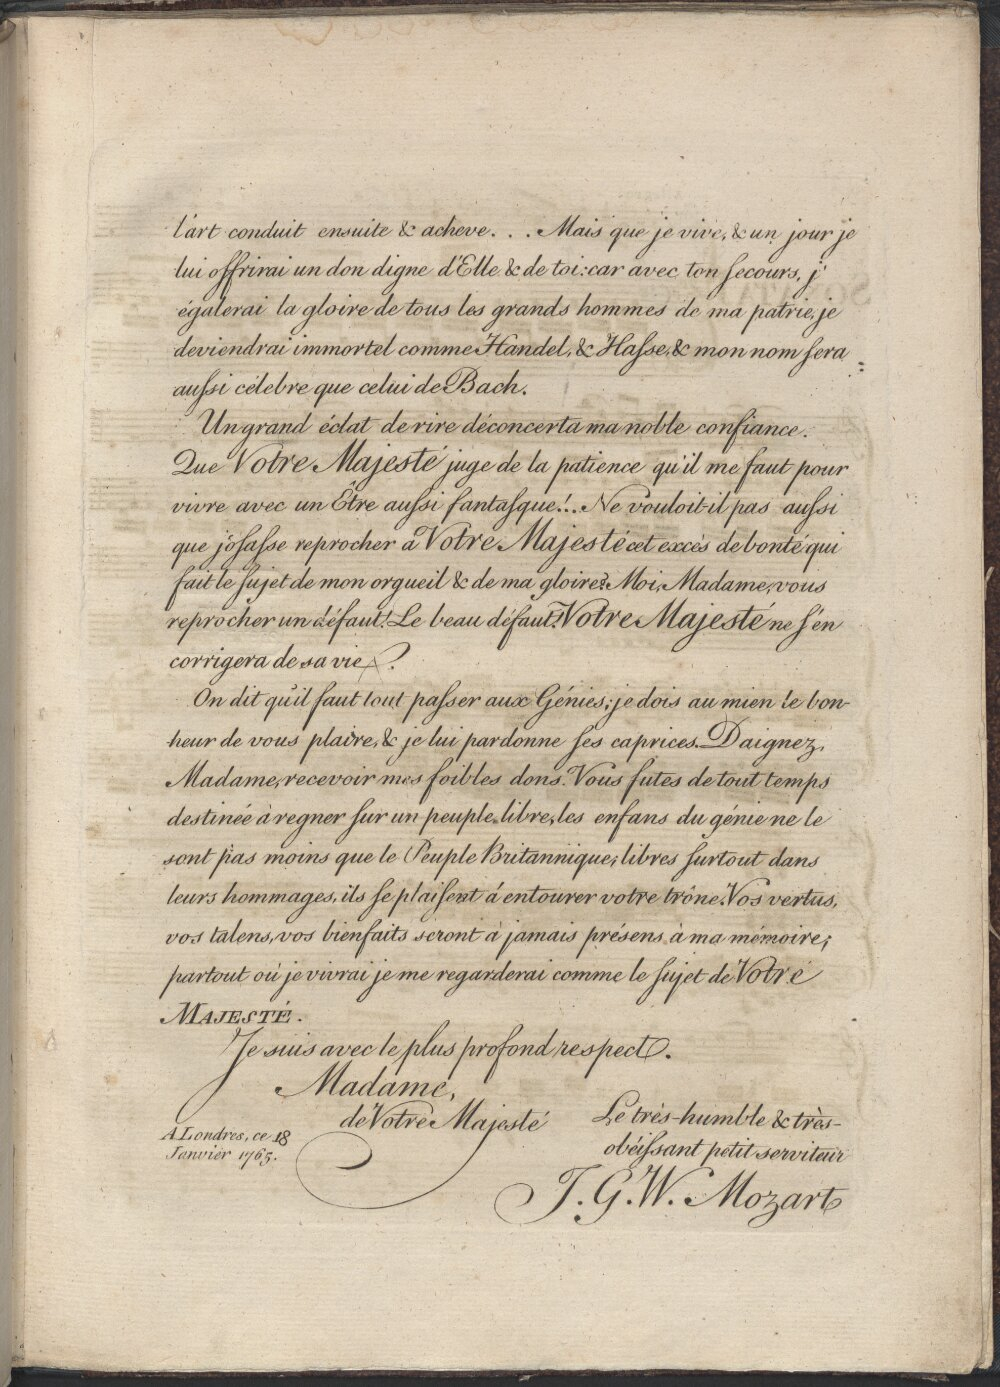 l'art conduit ensuite & acheve. . . Mais que je vive, & un jour je
lui offrirai un don digne d'Elle & de toi: car avec ton secours, j'
égalerai la gloire de tous les grands hommes de ma patrie, je
deviendrai immortel comme Handel, & Hasse, & mon nom sera
aussi célebre que celui de Bach.
Un grand éclat de rire déconcerta ma noble confiance.
Que Votre Majesté juge de la patience qu'il me faut pour
vivre avec un Être aussi fantasque!... Ne vouloit-il pas aussi
que j'osasse reprocher à Votre Majesté cet excés de bonté qui
fait le sujet de mon orgueil & de ma gloire? Moi, Madame, vous
reprocher un défaut! Le beau défaut! Votre Majesté ne s'en
corrigera de sa vie.
On dit qu'il faut tout passer aux Génies; je dois au mien le bon-
heur de vous plaire, & je lui pardonne ses caprices. Daignez,
Madame, recevoir mes foibles dons. Vous futes de tout temps
destinée à regner sur un peuple libre, les enfans du génie ne le
sont pas moins que le Peuple Britannique; libres surtout dans
leurs hommages, ils se plaisent à entourer votre trône. Vos vertus,
vos talens, vos bienfaits seront à jamais présens à ma mémoire;
partout où je vivrai je me regarderai comme le sujet de Votre
MAJESTÉ.
Je suis avec le plus profond respect.
Madame,
de Votre Majesté
Le très-humble & très-
obéissant petit serviteur
A Londres, ce 18
Janvier 1765.
J. G. W. Mozart